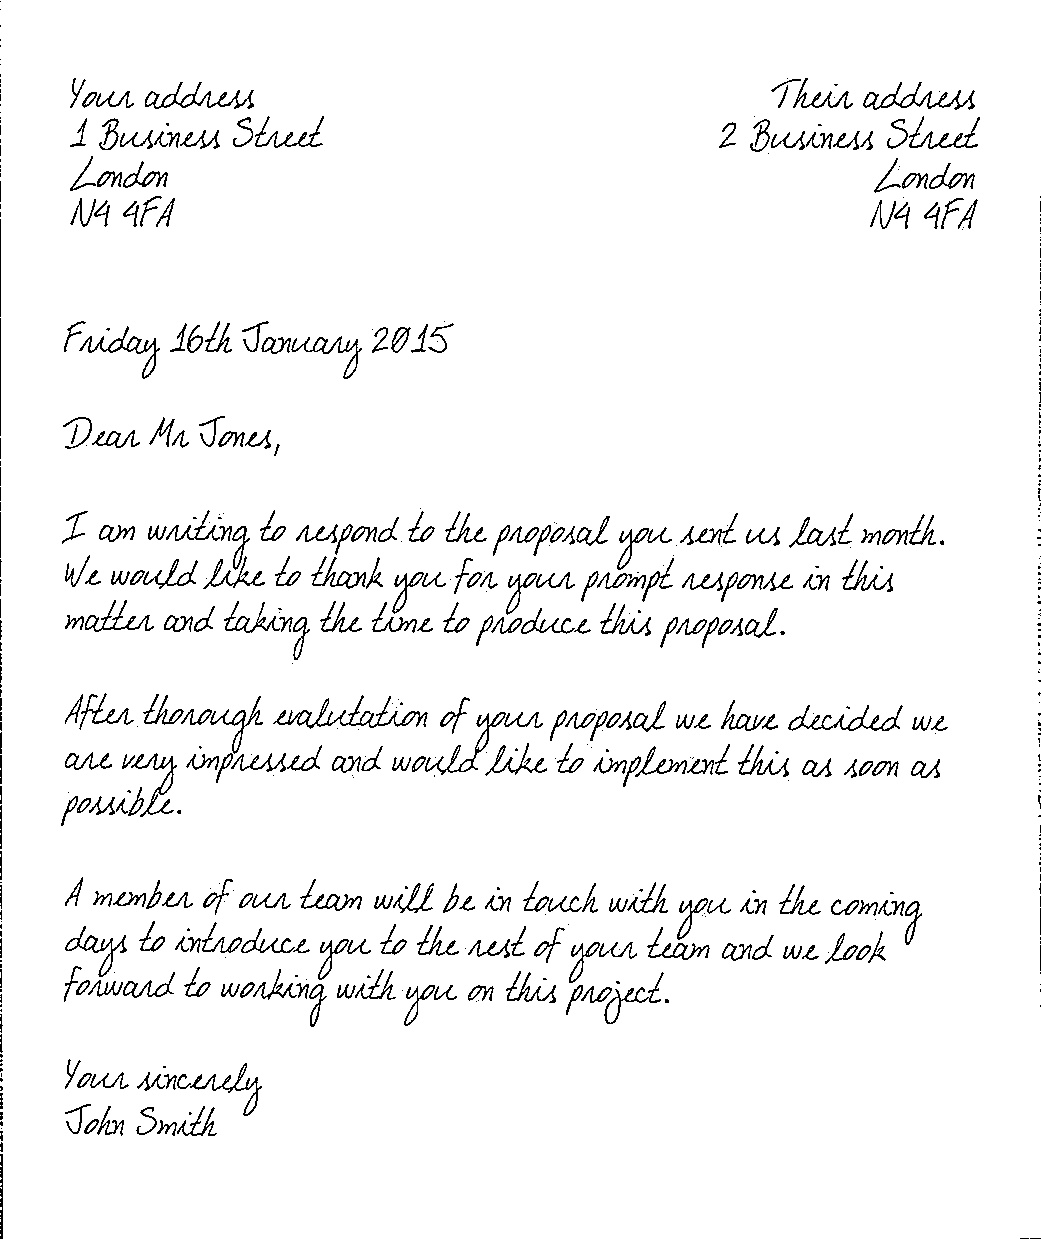 Your address
1 Business Street
London
N4 4FA
Their address
2 Business Street
London
N4 4FA
Friday 16th January 2015
Dear Mr Jones,
I am writing to respond to the proposal you sent us last month.
We would like to thank you for your prompt response in this
matter and taking the time to produce this proposal.
After thorough evalutation of your proposal we have decided we
are very impressed and would like to implement this as soon as
possible.
A member of our team will be in touch with you in the coming
days to introduce you to the rest of your team and we look
forward to working with you on this project.
Your sincerely
John Smith